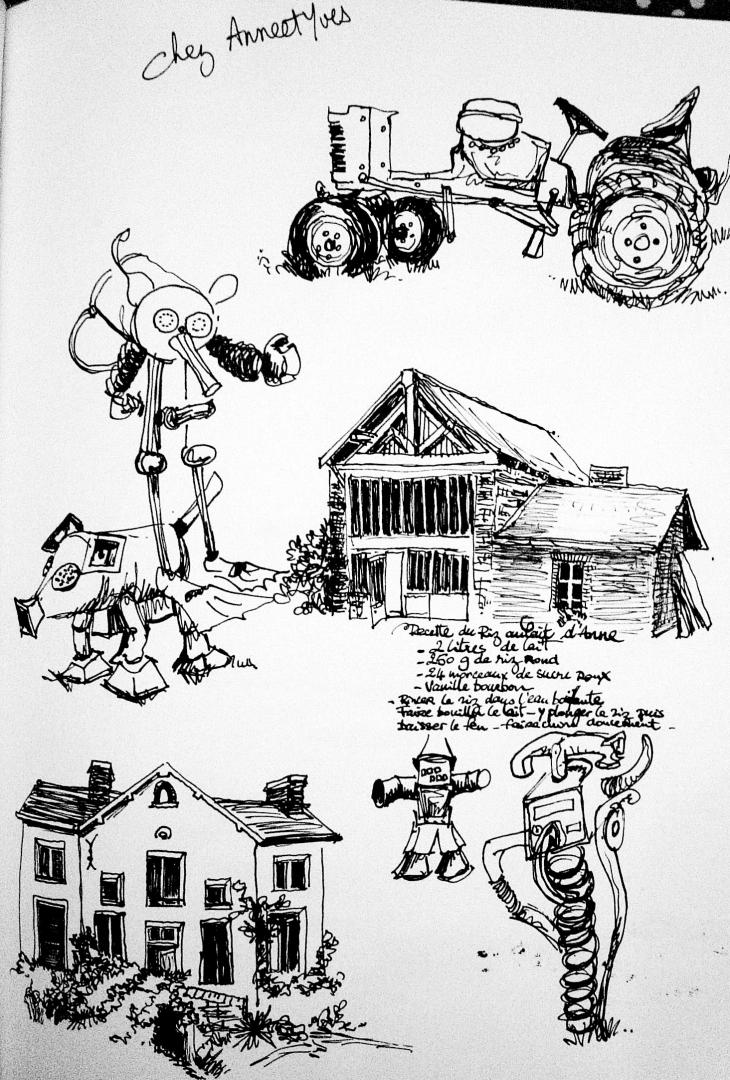 chez Anne et Yves
Recette du Riz au lait d'Anne
- 2 litres de lait
- 250 g de riz rond
- 24 morceaux de sucre Roux
- Vanille bourbon
- Rincer le riz dans l'eau bouillante
Faire bouillir le lait - y plonger le riz puis
baisser le feu - faire cuire doucement -